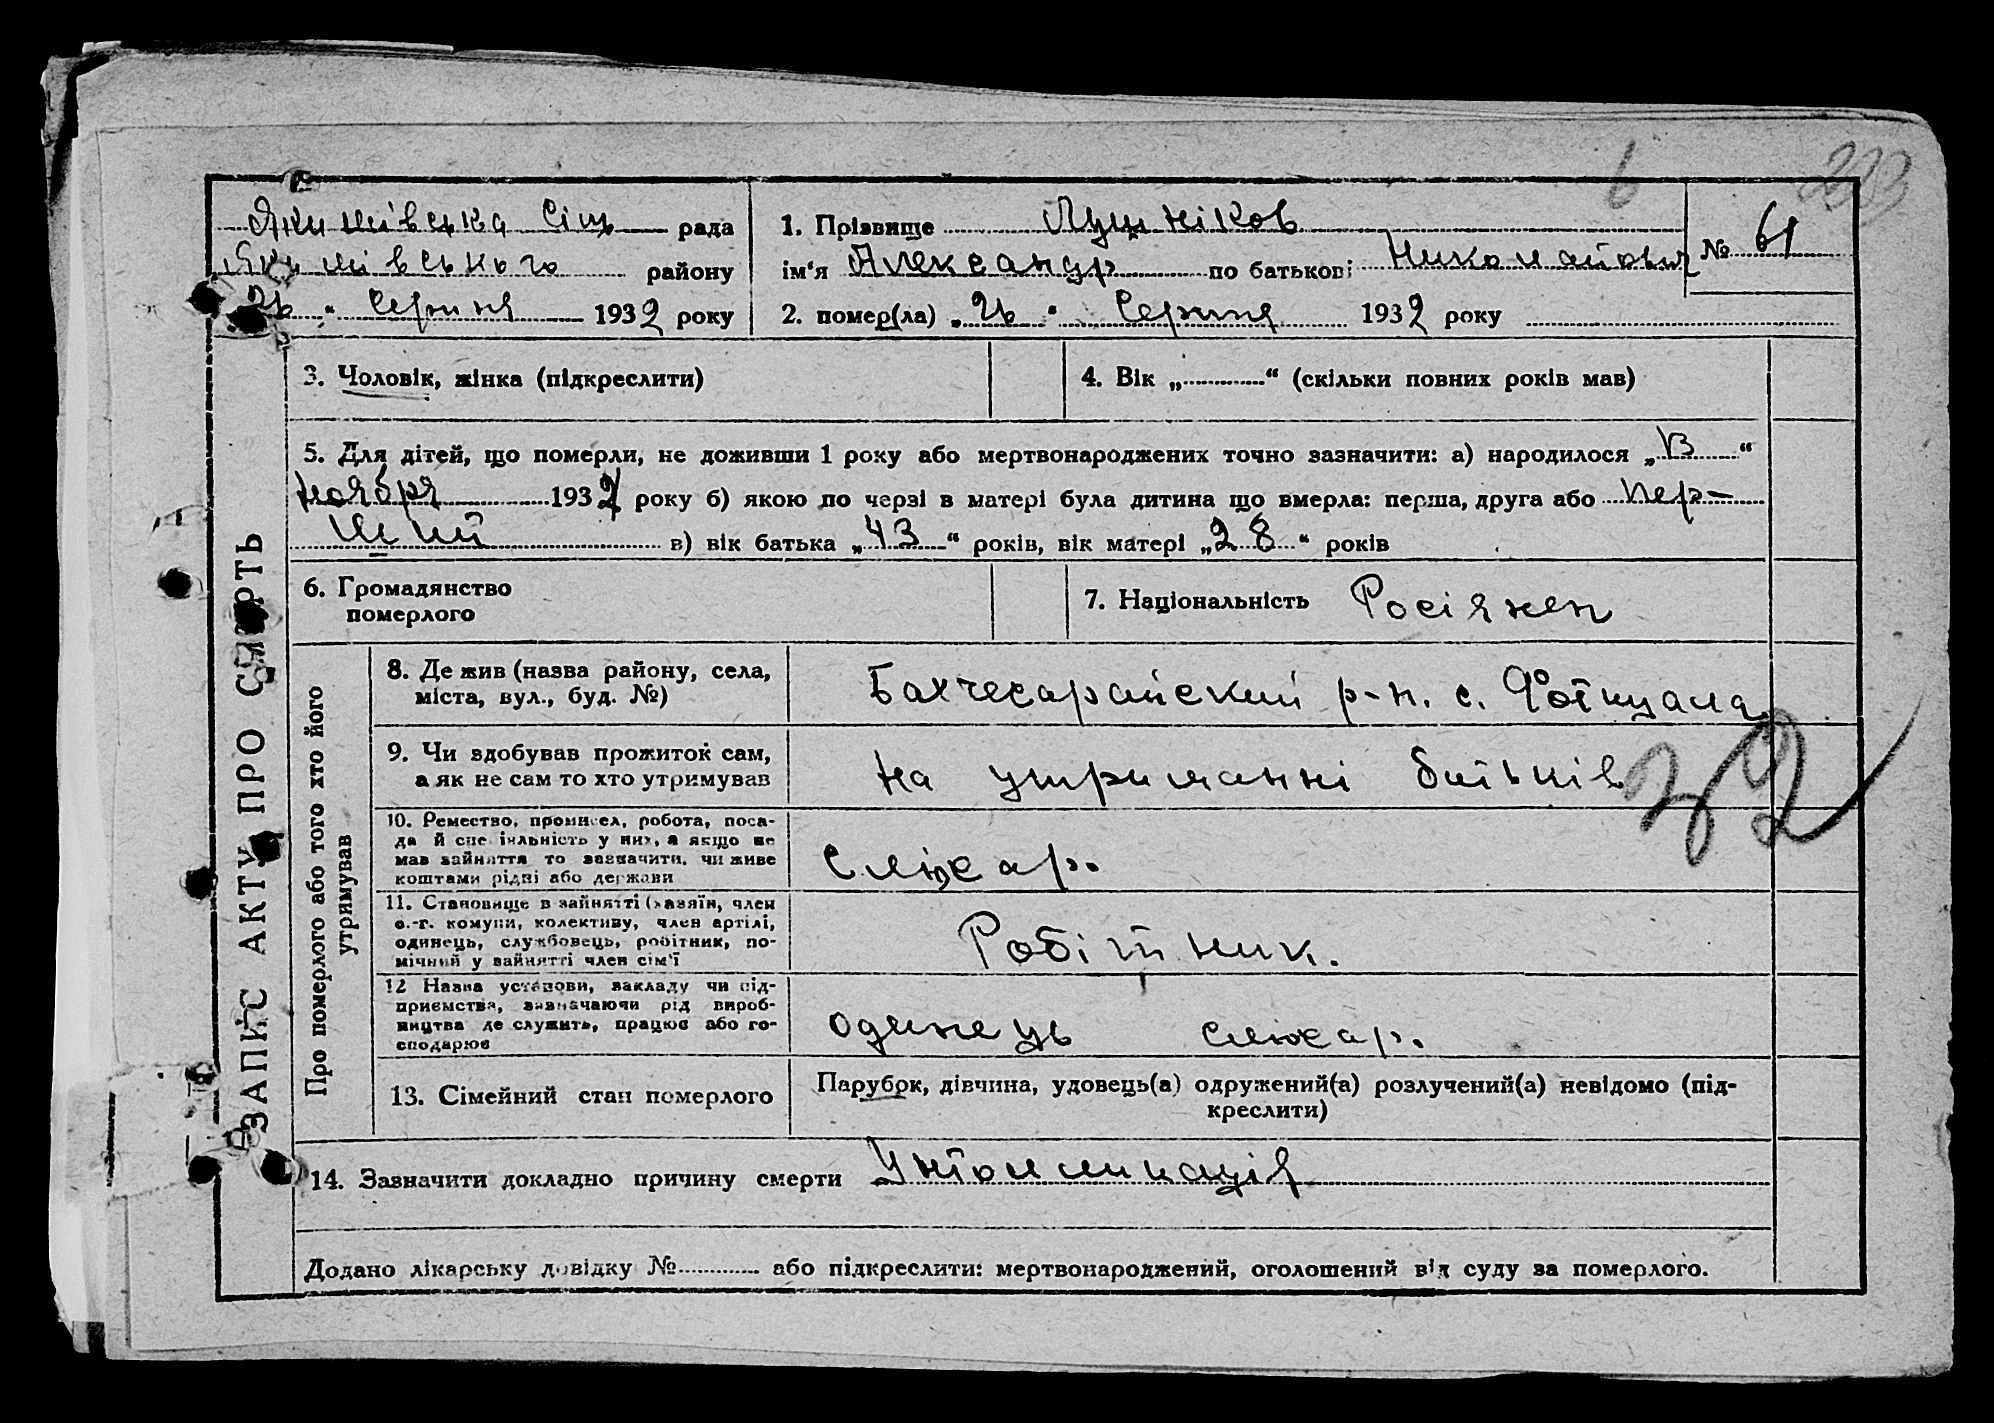 6 233
Якимівська Сіль рада
Якимівського району
26 " Серпня 1932 року
1. Прізвище Лушніков
ім'я Александр по батькові Николайович
№ 61
2. помер(ла) „26 " Серпня 1932 року
3. Чоловік, жінка (підкреслити)
4. Вік „ “ (скільки повних років мав)
5. Для дітей, що померли, не доживши 1 року або мертвонароджених точно зазначити: а) народилося „ “
Ноября 193 року б) якою по черзі в матері була дитина що вмерла: перша, друга або пер-
ший в) вік батька „43“ років, вік матері „28“ років
6. Громадянство
померлого
7. Національність Росіянен
ЗАПИС АКТУ ПРО СМЕРТЬ
Про померлого або того хто його
утримував
8. Де жив (назва району, села,
міста, вул., буд. №)
Бахчесарайский р-н. с.
9. Чи здобував прожиток сам,
а як не сам то хто утримував
на утриманні батьків
32
10. Ремество, промисел, робота, поса-
да й спеціяльність у них, а якщо не
мав зайняття то зазначити, чи живе
коштами рідні або держави
Слюсар.
11. Становище в зайнятті (хазяїн, член
с.-г. комуни, колективу, член артілі,
одинець, службовець, робітник, по-
мічний у зайнятті член сім'ї
Робітник.
12 Назва установи, закладу чи під-
приємства, зазначаючи рід вироб-
ництва де служить, працює або го-
сподарює
одинець слюсар.
13. Сімейний стан померлого
Парубок, дівчина, удовець(а) одружений(а) розлучений(а) невідомо (під-
креслити)
14. Зазначити докладно причину смерти
Додано лікарську довідку № або підкреслити: мертвонароджений, оголошений від суду за померлого.